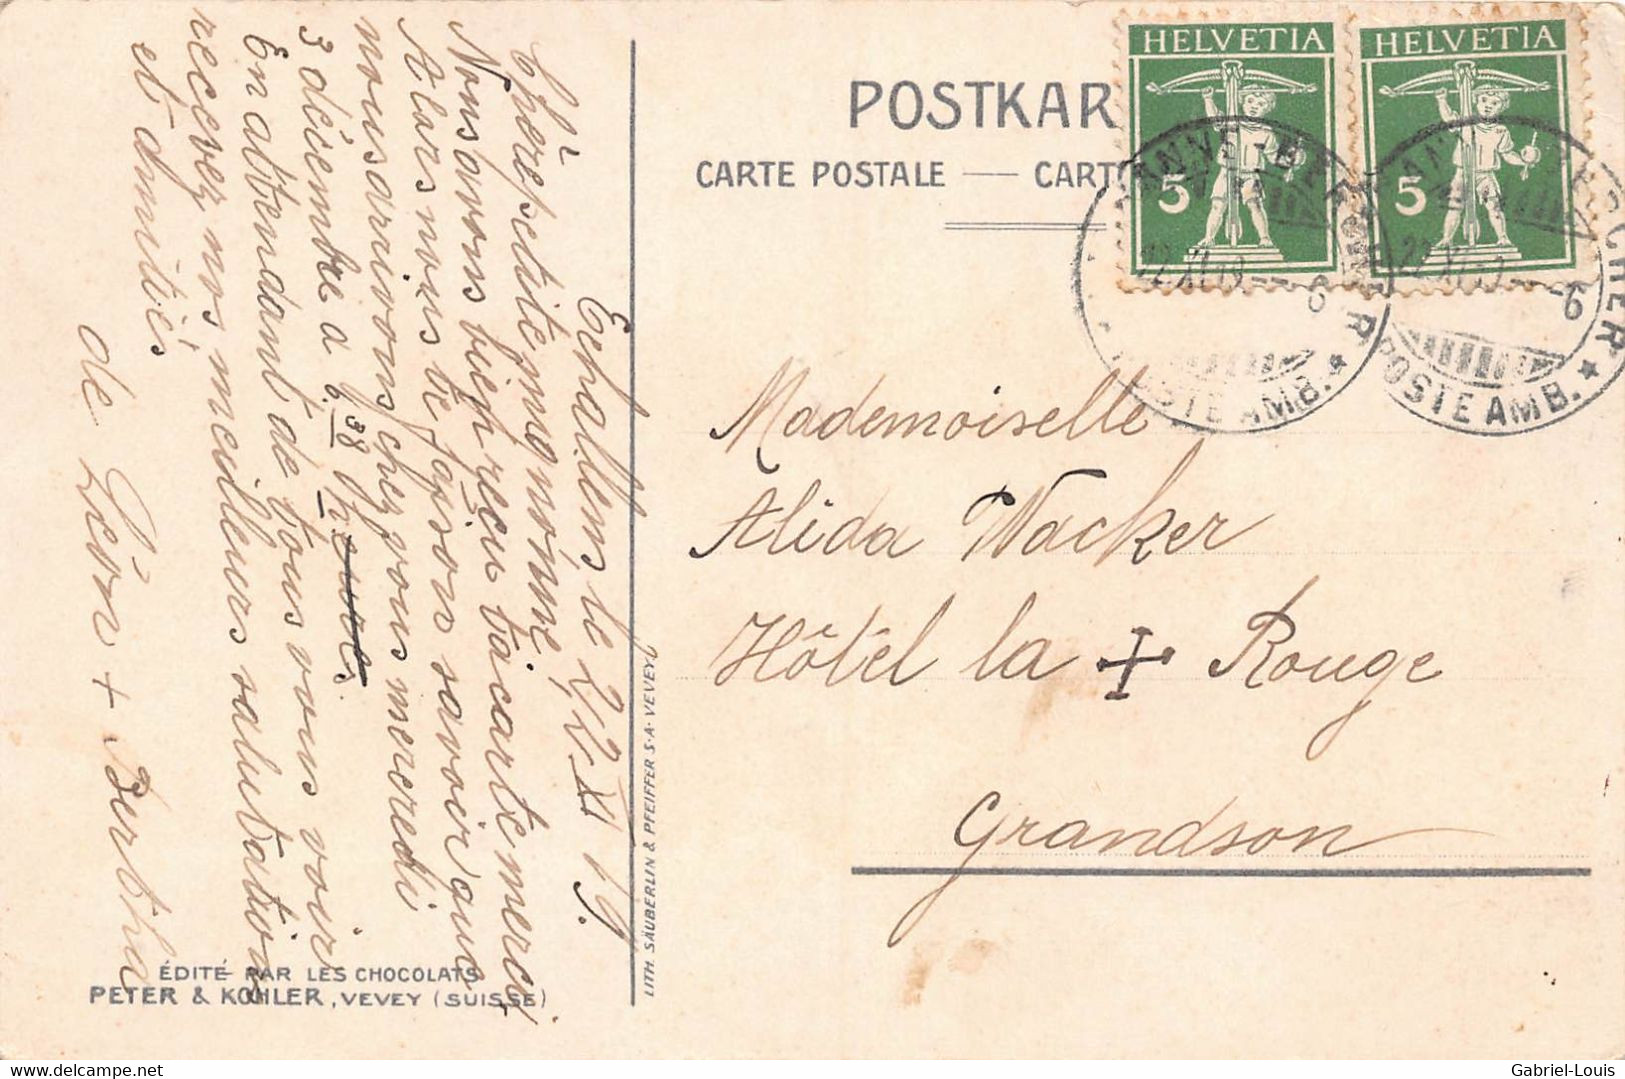 POSTKAR
CARTE POSTALE — CART
HELVETIA
5
HELVETIA
5
22 XI 19 -6
POSTE AMB.
BERCHER
POSTE AMB.
Mademoiselle
Alida Wacker
Hôtel la + Rouge
Grandson
Echallens le 22 XI 19.
Chère petite mignonne,
Nous avons bien reçu ta carte merci
Alors nous te faison savoir que
nous arrivons chez vous mercredi
3 décembre a 6.38 h
En attendant de tous vous voir
recevez nos meilleurs salutation
et amitiés
de Léon + Bertha
ÉDITÉ PAR LES CHOCOLATS
PETER & KOHLER, VEVEY (SUISSE)
LITH. SÄUBERLIN & PFEIFFER S.A. VEVEY
Gabriel-Louis